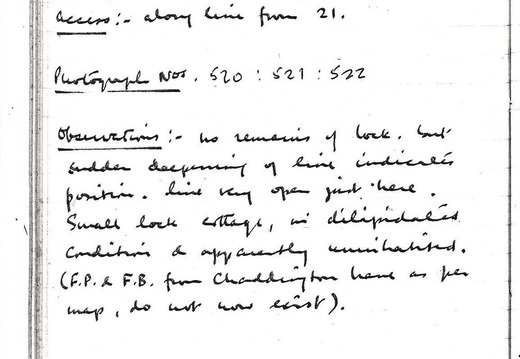 Access :- along line from 21.
Photograph Nos. 520 : 521 : 522
Observations :- no remains of lock. but
sudden deepening of line indicates
position. line very open just here.
Small lock cottage, in dilapidated
condition & apparently uninhabited.
(F.P. & F.B. from Chaddington lane as per
map, do not now exist).